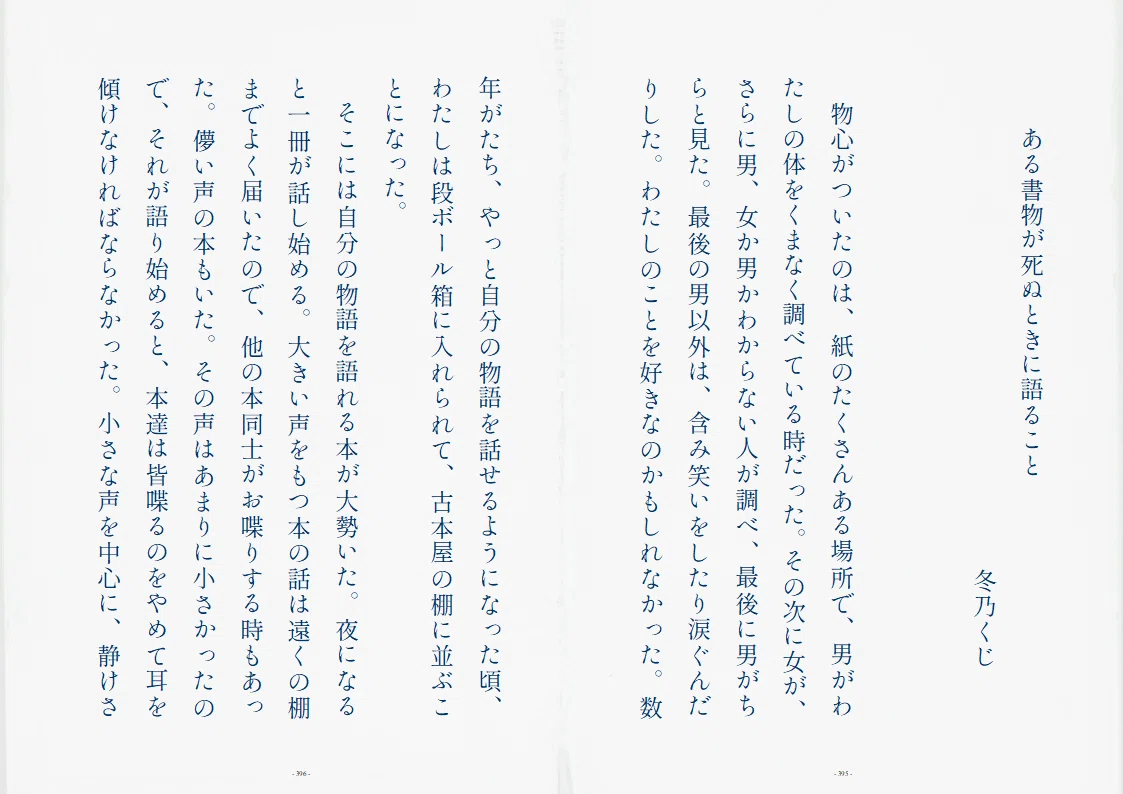 ある書物が死ぬときに語ること
冬乃くじ
物心がついたのは、紙のたくさんある場所で、男がわ
たしの体をくまなく調べている時だった。その次に女が、
さらに男、女か男かわからない人が調べ、最後に男がち
らと見た。最後の男以外は、含み笑いをしたり涙ぐんだ
りした。わたしのことを好きなのかもしれなかった。数
- 395 -
年がたち、やっと自分の物語を話せるようになった頃、
わたしは段ボール箱に入れられて、古本屋の棚に並ぶこ
とになった。
そこには自分の物語を語れる本が大勢いた。夜になる
と一冊が話し始める。大きい声をもつ本の話は遠くの棚
までよく届いたので、他の本同士がお喋りする時もあっ
た。儚い声の本もいた。その声はあまりに小さかったの
で、それが語り始めると、本達は皆喋るのをやめて耳を
傾けなければならなかった。小さな声を中心に、静けさ
- 396 -